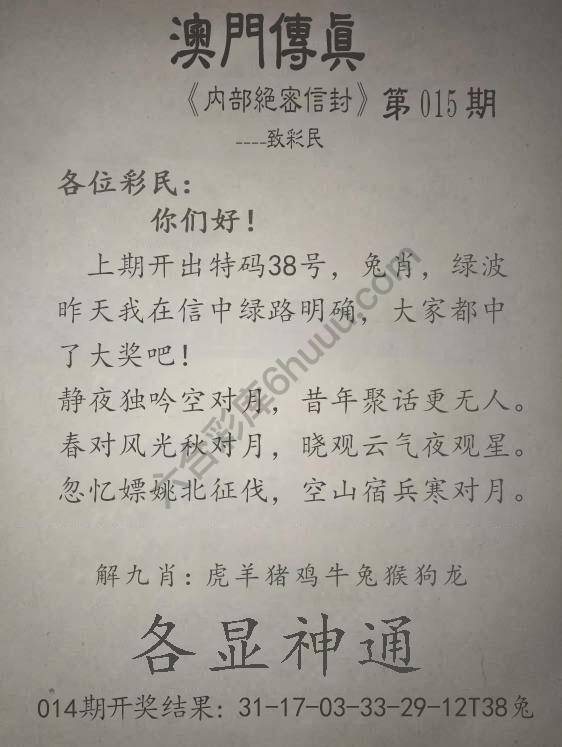 澳門傳眞
《内部絕密信封》第015期
----致彩民
各位彩民：
你们好！
上期开出特码38号，兔肖，绿波
昨天我在信中绿路明确，大家都中
了大奖吧！
静夜独吟空对月，昔年聚话更无人。
春对风光秋对月，晓观云气夜观星。
忽忆嫖姚北征伐，空山宿兵寒对月。
解九肖：虎羊猪鸡牛兔猴狗龙
各显神通
014期开奖结果：31-17-03-33-29-12T38兔
六合彩库6huuu.com